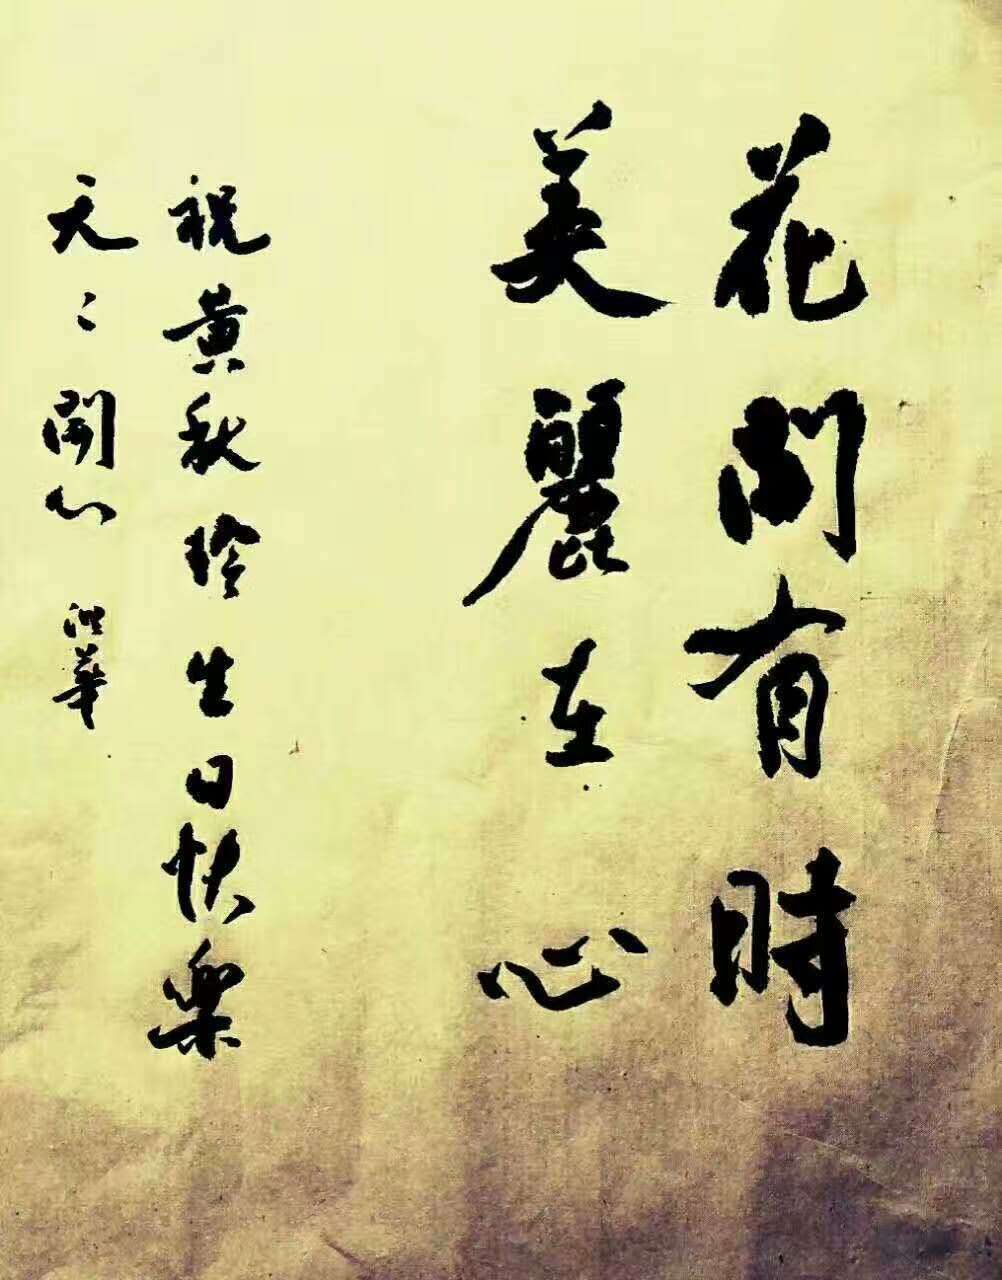 花開有時
美麗在心
祝黄秋玲生日快樂
天〻開心 華